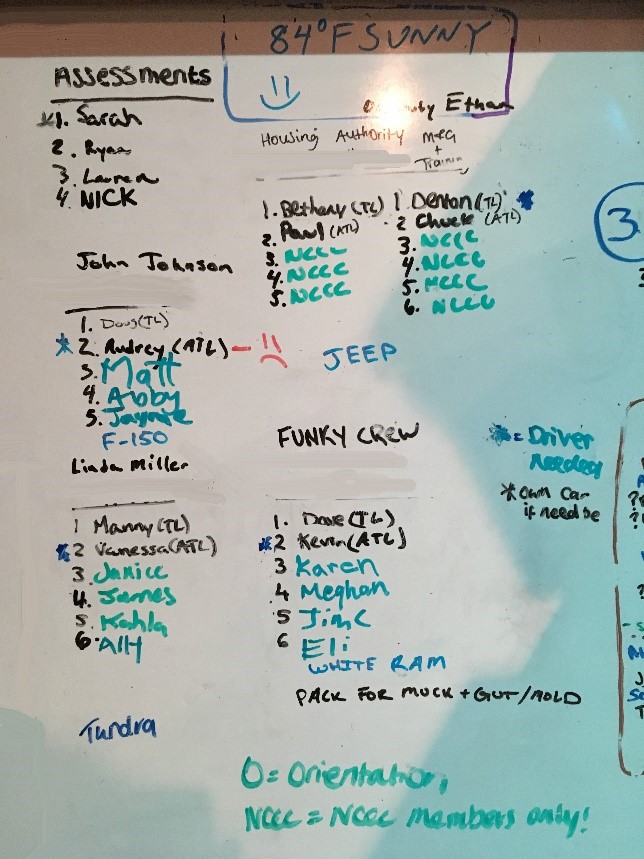 84°F SUNNY
Assessments
1. Sarah
2. Ryan
3. Lauren
4. NICK
Ethan
Housing Authority
M+G
+
1. Bethany (TL)
2. Paul (ATL)
3. NCCC
4. NCCC
5. NCCC
1. Denton (TL)
2 Chuck (ATL)
3. NCCC
4. NCCC
5. NCCC
6. NCCC
John Johnson
1. Doug (TL)
2. Audrey (ATL) –
3. Matt
4. Abby
5. Jaymie
F-150
JEEP
Linda Miller
1 Manny (TL)
2 Vanessa (ATL)
3 Janice
4. James
5. Kahla
6. Ally
Tundra
FUNKY CREW
1. Dave (TL)
2 Kevin (ATL)
3 Karen
4 Meghan
5 Jim C
6 Eli
WHITE RAM
PACK FOR MUCK + GUT/MOLD
* = Driver
Needed
* own car
if need be
3
O = Orientation,
NCCC = NCCC members only!